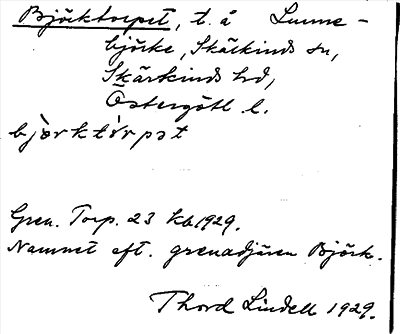 Björktorpet, t. å Lunne-
björke, Skärkinds sn,
Skärkinds hd,
Östergötl. l.
bjòrktòrpət
Gren. Torp. 23 kb 1929.
Namnet eft. grenadjären Björk.
Thord Lindell 1929.